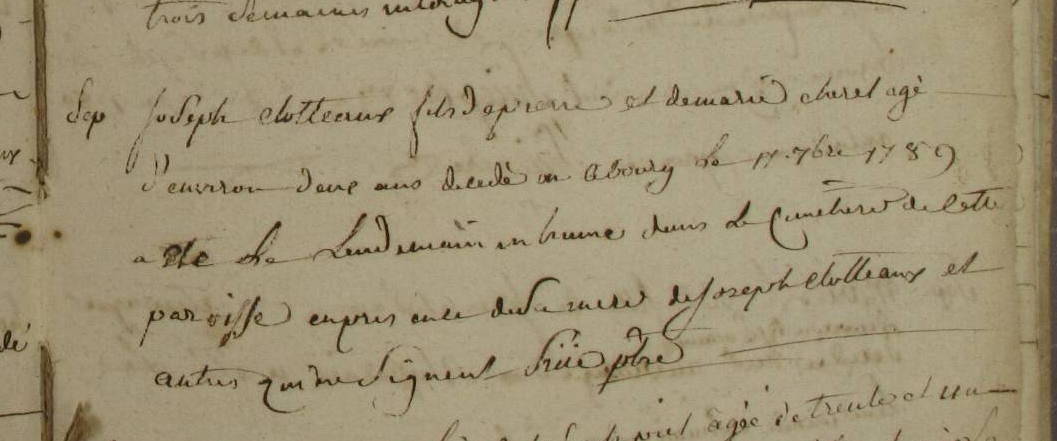 trois semaines
Sep Joseph Clotteaux fils de pierre et de marie Clerel agé
d'environ deux ans decedé au bourg le 17 7bre 1789
a ete le Lendemain inhumé dans le Cimetiere de Cette
paroisse en presence de Sa mere de Joseph Clotteaux et
autres qui ne Signent ptre
agée de trente et un